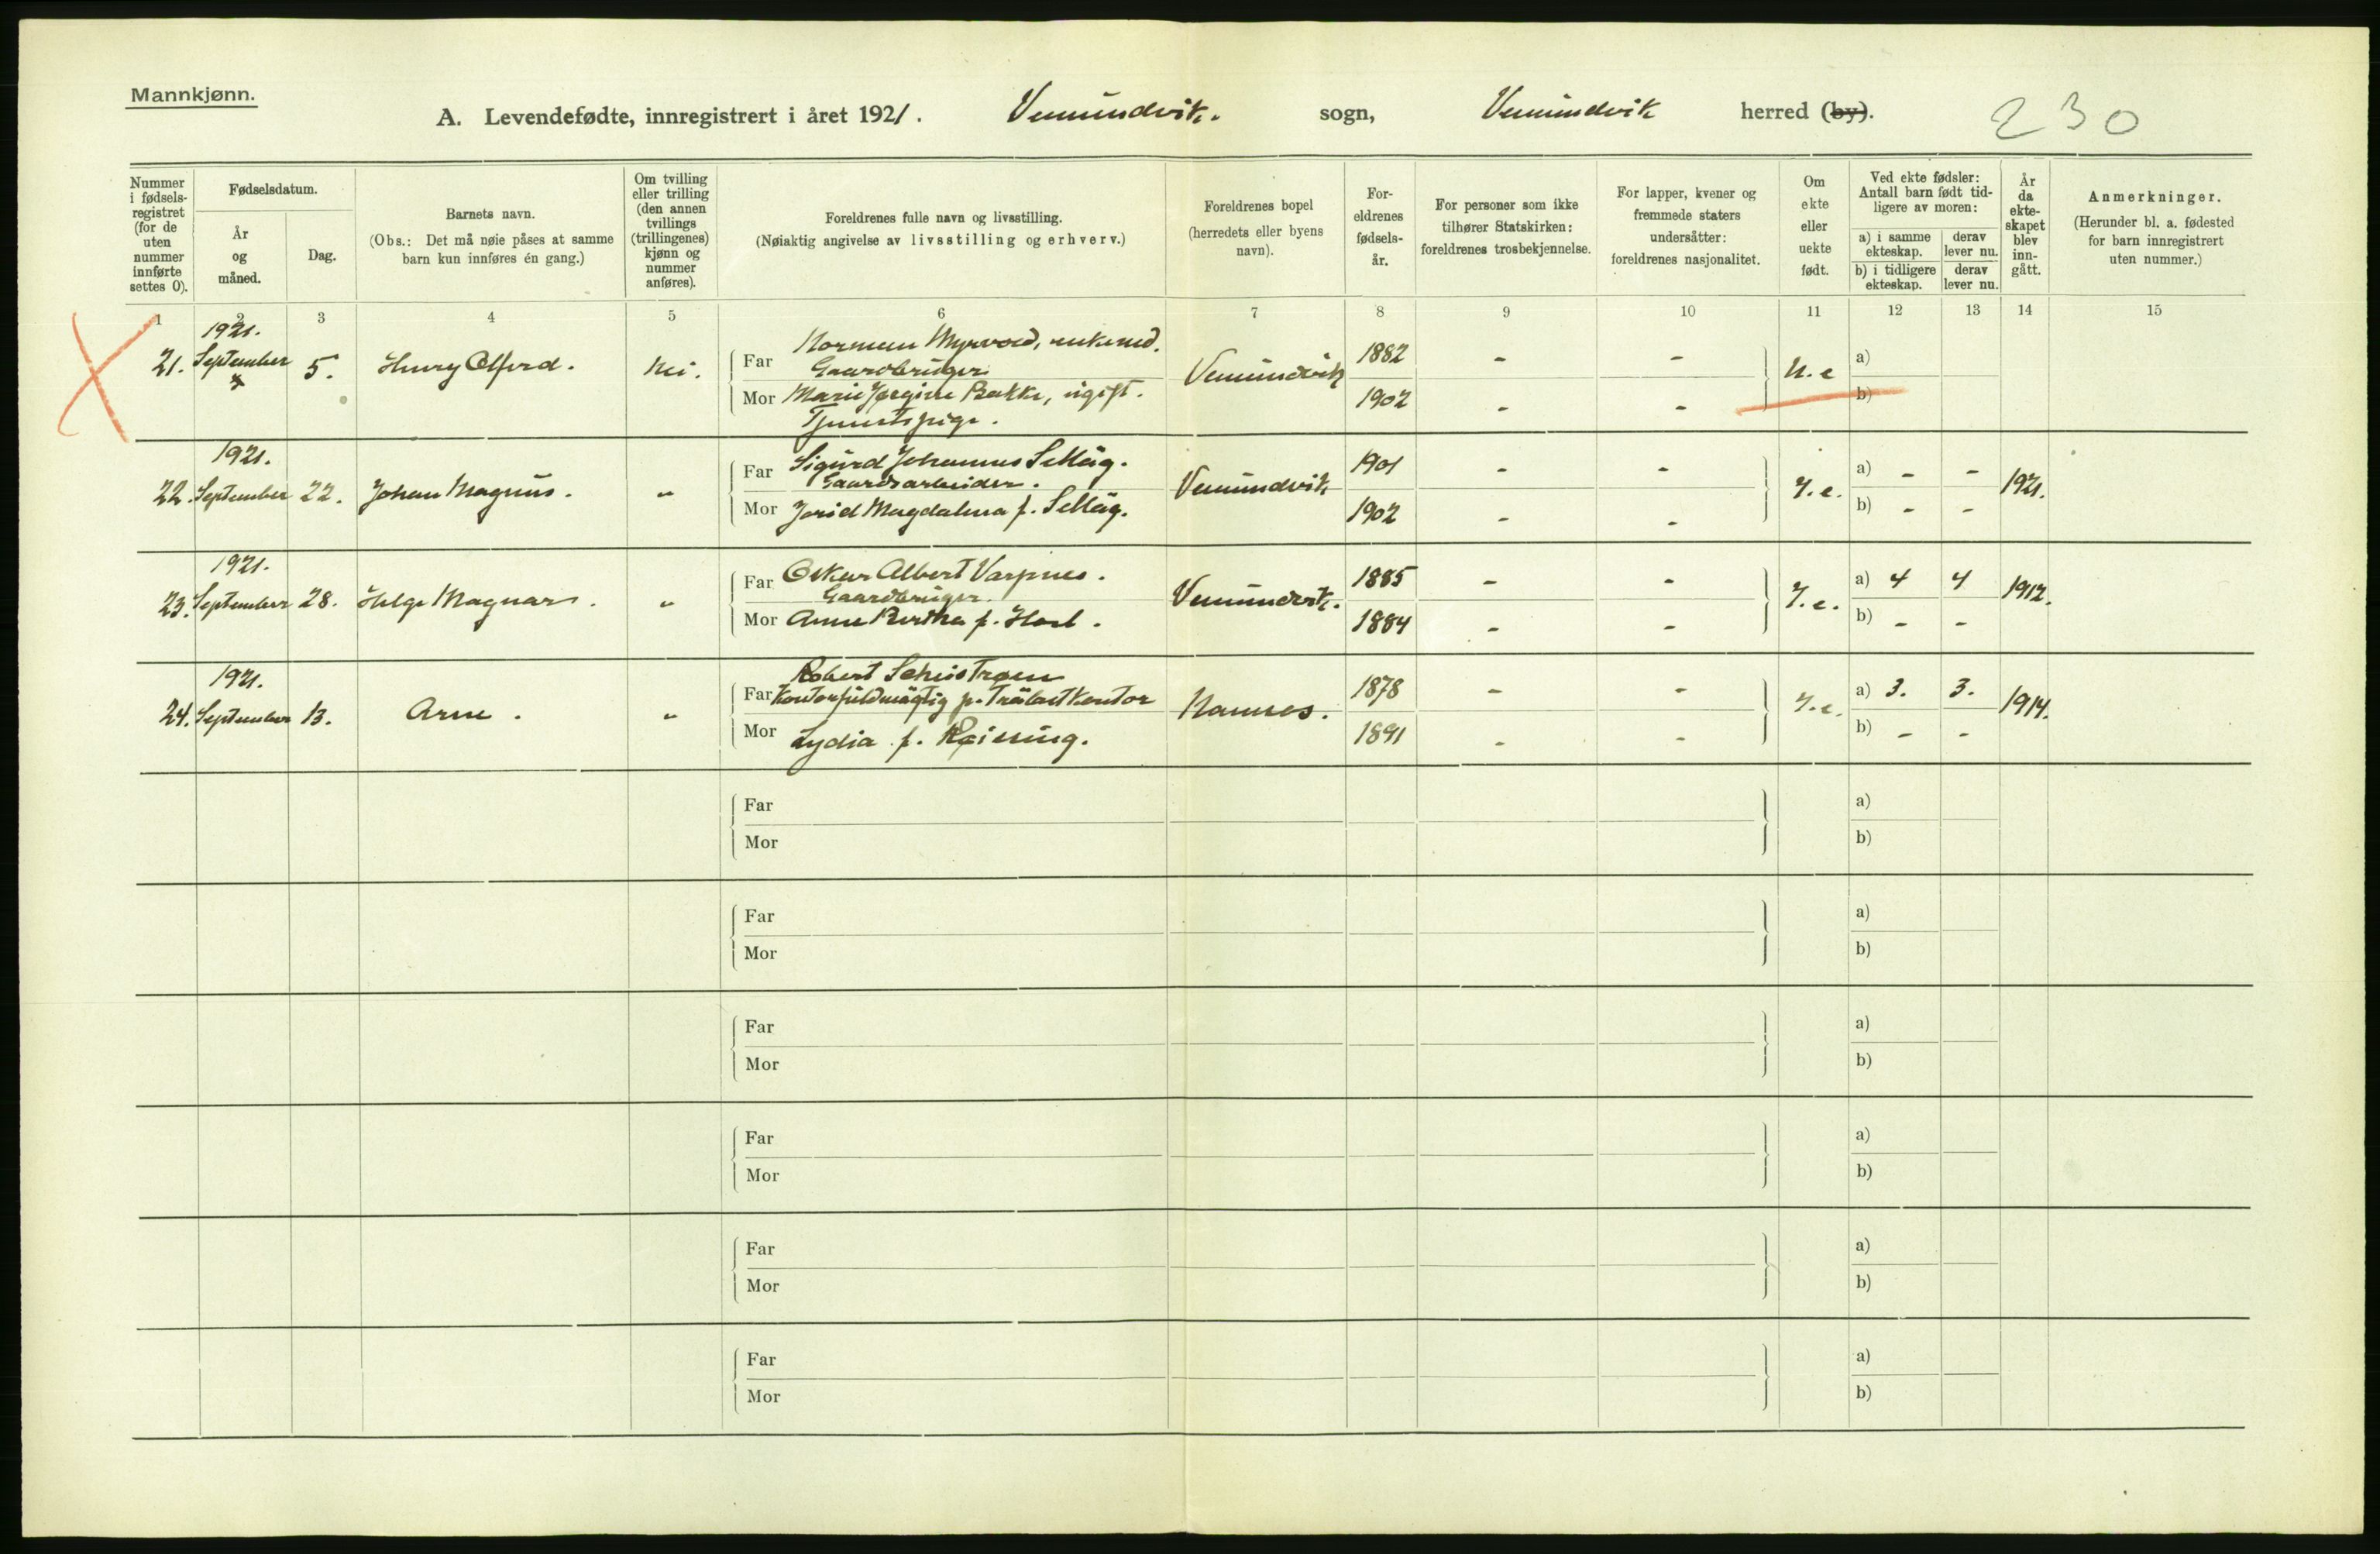 Mannkjønn.
A. Levendefødte, innregistrert i året 1921. Vemundvik. sogn, Vemundvik herred (by). 230
Nummer i fødsels-registret (for de uten nummer innførte settes 0).
Fødselsdatum.
År og måned.
Dag.
Barnets navn.
(Obs.: Det må nøie påses at samme barn kun innføres én gang.)
Om tvilling eller trilling (den annen tvillings (trillingenes) kjønn og nummer anføres).
Foreldrenes fulle navn og livsstilling.
(Nøiaktig angivelse av livsstilling og erhverv.)
Foreldrenes bopel (herredets eller byens navn).
For-eldrenes fødsels-år.
For personer som ikke tilhører Statskirken: foreldrenes trosbekjennelse.
For lapper, kvener og fremmede staters undersåtter: foreldrenes nasjonalitet.
Om ekte eller uekte født.
Ved ekte fødsler: Antall barn født tid-ligere av moren:
a) i samme ekteskap.
derav lever nu.
b) i tidligere ekteskap.
derav lever nu.
År da ekte-skapet blev inn-gått.
Anmerkninger.
(Herunder bl. a. fødested for barn innregistrert uten nummer.)
1 2 3 4 5 6 7 8 9 10 11 12 13 14 15
1921.
21. September 5. Henry Alfred. Nei.
Far Normann Myrvold, enkemd. Gaardbruger 1882 - -
Mor Marie Jørgine Bakke, ugift. Tjenestepige. 1902 - -
Vemundvik U.e a) b)
1921.
22. September 22. Johan Magnus. "
Far Sigurd Johannes Selläg. Gaardsarbeider. 1901 - -
Mor Jorid Magdalena f. Selläg. 1902 - -
Vemundvik
a) - - b) - - 1921.
1921.
23. September 28. Helge Magnar. "
Far Oskar Albert Varpnes. Gaardbruger. 1885 - -
Mor Anna Bertha f. 1884 - -
Vemundvik.
a) 4 4 b) - - 1912.
1921.
24. September 13. Arne. "
Far Robert
Kontorfuldmägtig p. Trälastkontor 1878 - -
Mor Lydia f. 1891 - -
Namsos.
a) 3. 3. b) - - 1914.
Far a)
Mor b)
Far a)
Mor b)
Far a)
Mor b)
Far a)
Mor b)
Far a)
Mor b)
Far a)
Mor b)